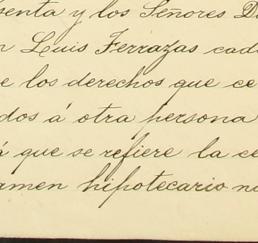 senta y los Señores D
n Luis Ferrazas cad
e los derechos que ce
dos á otra persona
á que se refiere la ce
rmen hipotecario n